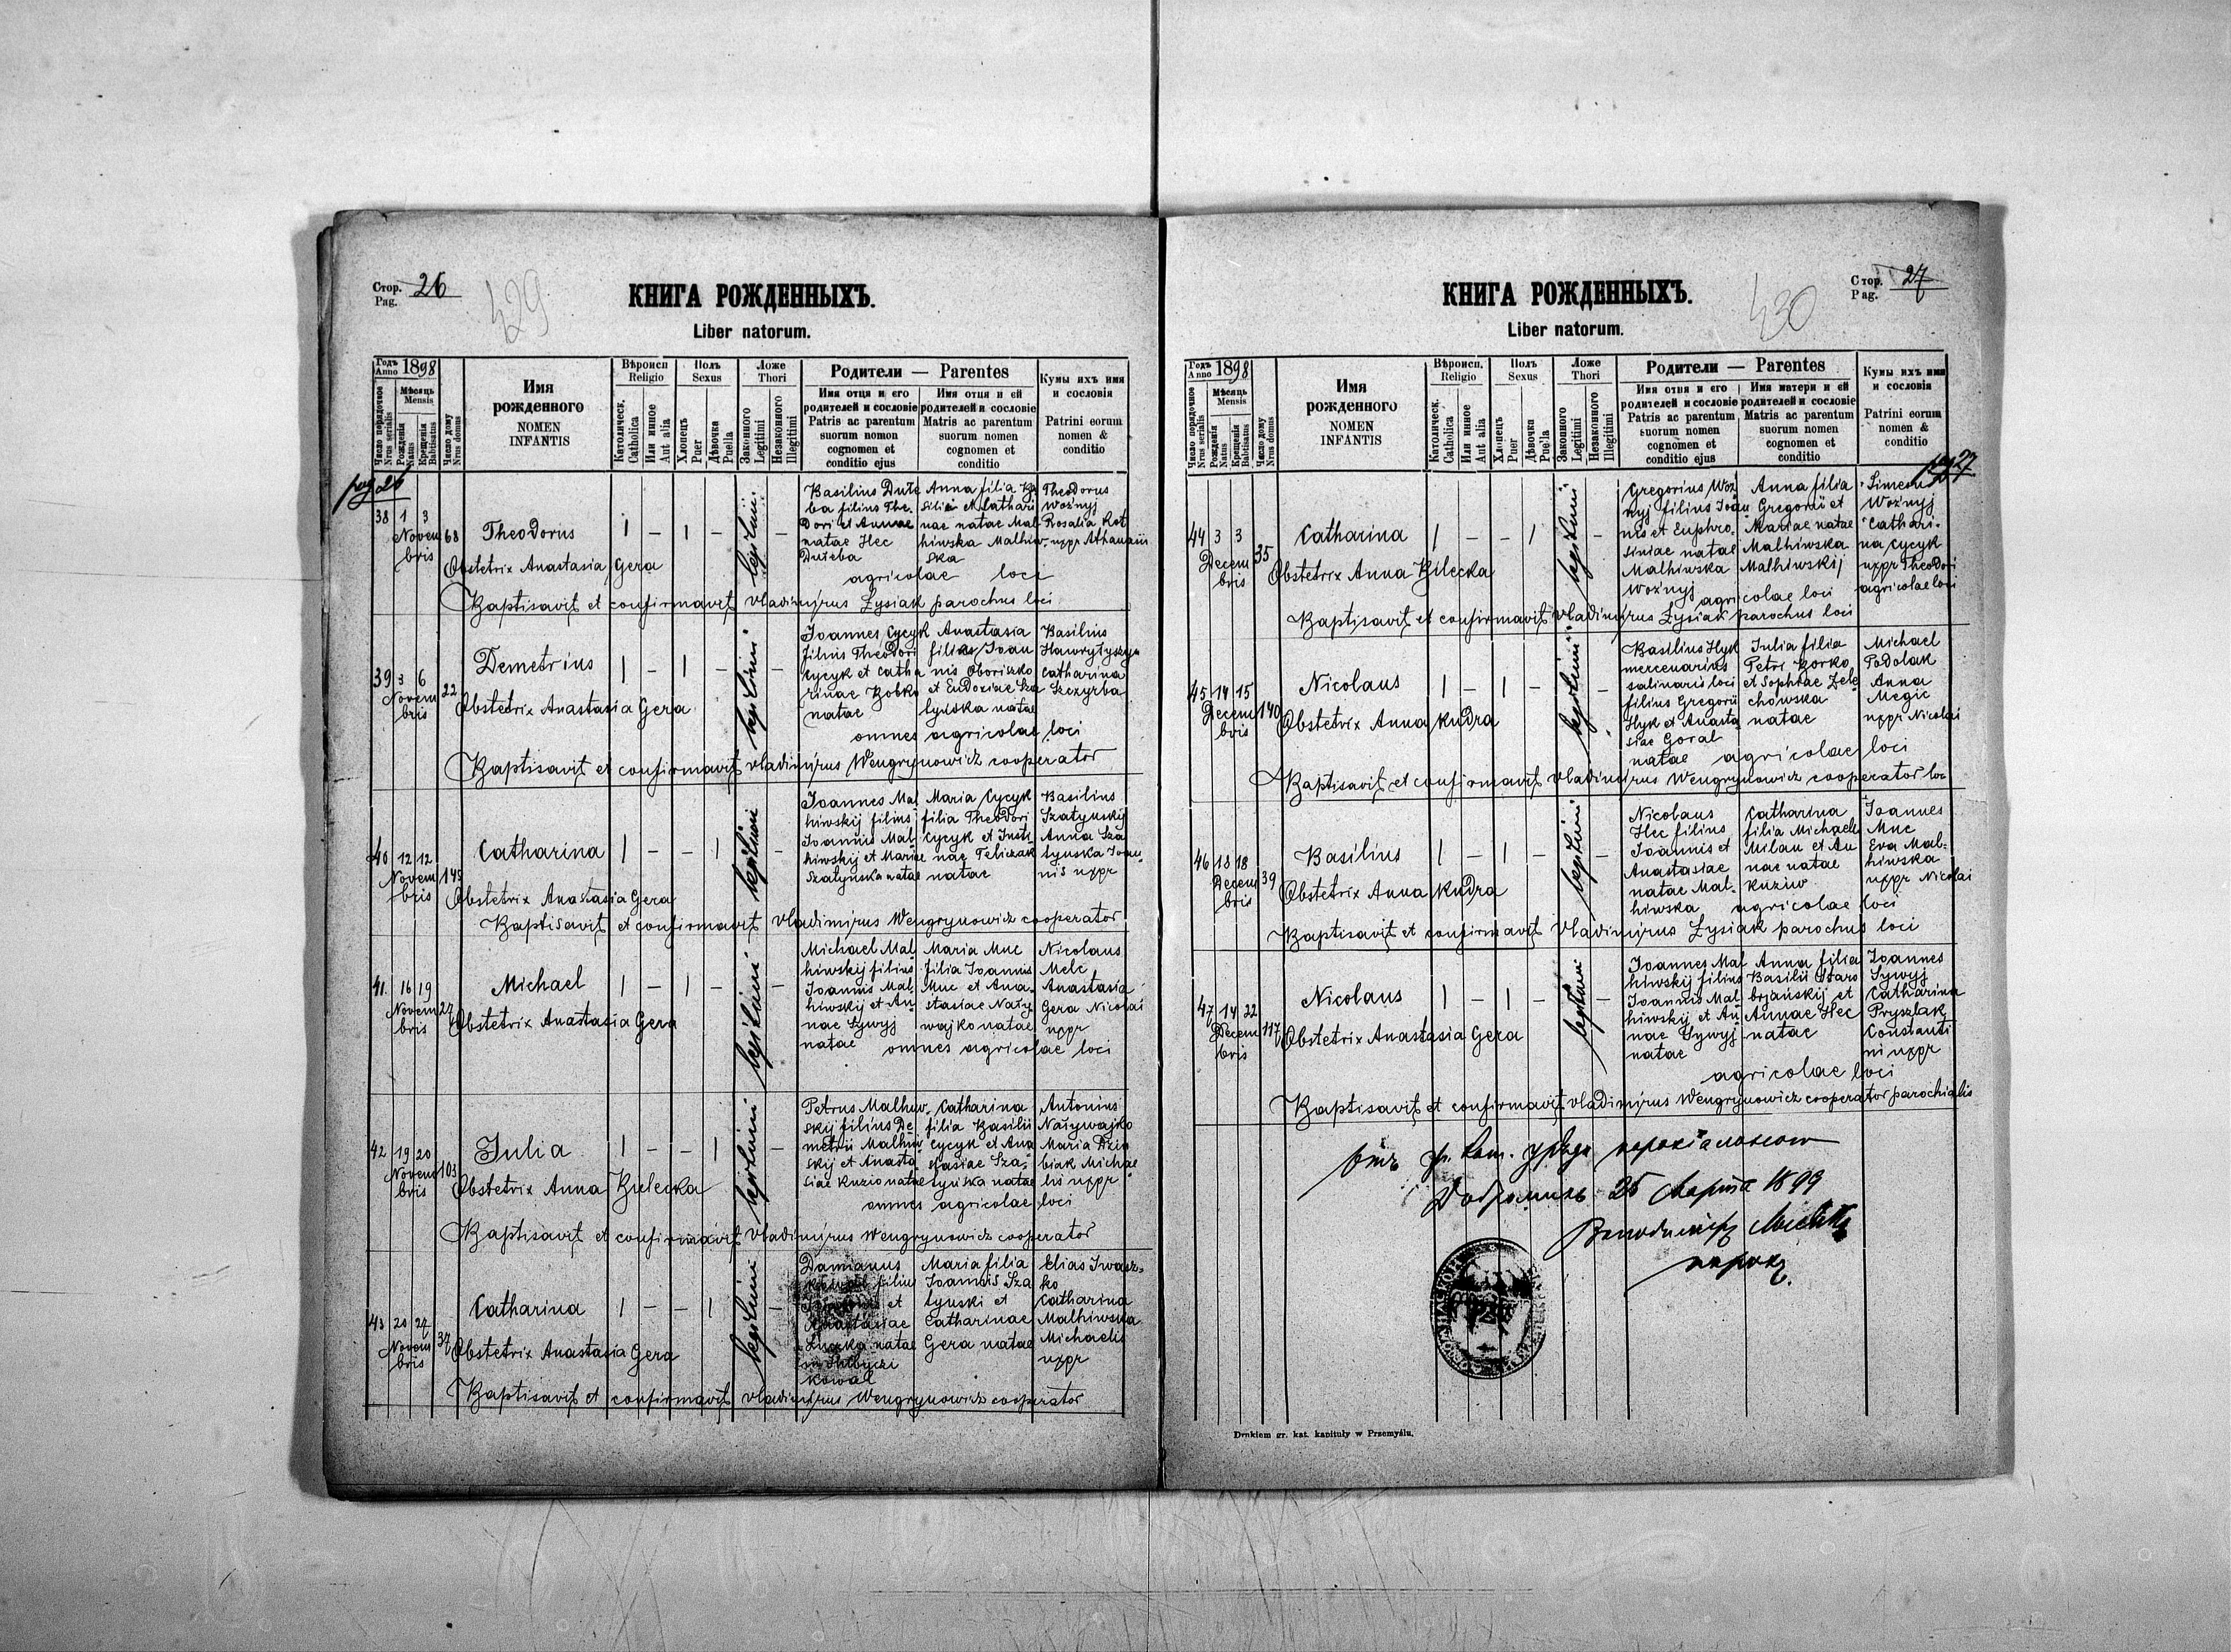 Стор. 26
Pag.
429
КНИГА РОЖДЕННЫХЪ.
Liber natorum.
Годъ Anno 1898
Мѣсяць Mensis
Число порядочное Nrus serialis
Рожденія Natus
Крещенія Babtisatus
Число дому Nrus domus
Имя рожденного
NOMEN INFANTIS
Вѣроисп Religio
Католическ. Catholica
Или инное Aut alia
Полъ Sexus
Хлопецъ Puer
Дѣвочка Puella
Ложе Thori
Законного Legitimi
Незаконного Illegitimi
Родители — Parentes
Имя отця и его родителей и сословіе
Patris ac parentum suorum nomon cognomen et conditio ejus
Имя отця и ей родителей и сословіе
Matris ac parentum suorum nomen cognomen et conditio
Кумы ихъ имя и сословія
Patrini eorum nomen & conditio
pag 26
38 1 3 Novembris 68
Theodorus
legitimi
Basilius Dute
ba filius The.
dori et Annae
natae Hec
Duteba
Anna filia Ba
silii et Cathari
nae natae Mal-
hiwska Malhiw-
ska
Theodorus
Woźnyj
Rosalia Kot
uxor Athanasii
agricolae loci
Obstetrix Anastasia Gera
Baptisavit et confirmavit Vladimirus Lysiak parochus loci
39 3 6 Novembris 22
Demetrius
legitimi
Joannes Cycyk
filius Theodori
Cycyk et Catha
rinae Bobko
natae
Anastasia
filia Joan
nis Oboriszko
et Eudoxiae Sza
tynska natae
Basilius
Hawryłyszyn
Catharina
Szczyrba
omnes agricolae loci
Obstetrix Anastasia Gera
Baptisavit et confirmavit Vladimirus Wengrynowicz cooperator
40 12 12 Novembris 145
Catharina
legitimi
Joannes Mal
hiwskij filius
Joannis Mal-
hiwskij et Mariae
Szatynska natae
Maria Cycyk
filia Theodori
Cycyk et Justi
nae Teliczak
natae
Basilius
Szatynskij
Anna Sza
tynska Joan-
nis uxor
Obstetrix Anastasia Gera
Baptisavit et confirmavit Vladimirus Wengrynowicz cooperator
41. 16 19 Novembris 27
Michael
legitimi
Michael Mal
hiwskij filius
Joannis Mal-
hiwskij et An
nae Sywyj
natae
Maria Muc
filia Joannis
Muc et Ana-
stasiae Naty
wajko natae
Nicolaus
Melc
Anastasia
Gera Nicolai
uxor
omnes agricolae loci
Obstetrix Anastasia Gera
42 19 20 Novembris 103
Julia
legitimi
Petrus Malhiw-
skij filius De
metrii Malhiw
skij et Anasta
siae Kuzio natae
Catharina
filia Basilii
Cycyk et Ana
stasiae Sza-
tynska natae
Antonius
Natywajko
Maria Dziu
biak Michae
lis uxor
omnes agricolae loci
Obstetrix Anna Bulecka
Baptisavit et confirmavit Vladimirus Wengrynowicz cooperator
43 20 27 Novembris 37
Catharina
legitimi
Damianus
Kowal filius
et
Anastasiae
natae
Kowal
Maria filia
Joannis Sza
tynski et
Catharinae
Gera natae
Elias Iwasz-
ko
Catharina
Malhiwska
Michaelis
uxor
Obstetrix Anastasia Gera
Baptisavit et confirmavit Vladimirus Wengrynowicz cooperator
Стор. 27
Pag.
430
КНИГА РОЖДЕННЫХЪ.
Liber natorum.
Годъ Anno 1898
Мѣсяць Mensis
Число порядочное Nrus serialis
Рожденія Natus
Крещенія Babtisatus
Число дому Nrus domus
Имя рожденного
NOMEN INFANTIS
Вѣроисп. Religio
Католическ. Catholica
Или инное Aut alia
Полъ Sexus
Хлопецъ Puer
Дѣвочка Puella
Ложе Thori
Законного Legitimi
Незаконного Illegitimi
Родители — Parentes
Имя отця и его родителей и сословіе
Patris ac parentum suorum nomen cognomen et conditio ejus
Имя матери и ей родителей и сословіе
Matris ac parentum suorum nomen cognomen et conditio
Кумы ихъ имя и сословія
Patrini eorum nomen & conditio
pag 27
44 3 3 Decembris 35
Catharina
legitimi
Gregorius Woź
nyj filius Joan
nis et Euphro-
siniae natae
Malhiwska
Woźnyj
Anna filia
Gregorii et
Mariae natae
Malhiwska
Malhiwskij
Simeon
Woźnyj
Cathari-
na Cycyk
uxor Theodori
agricolae loci
agricolae loci
Obstetrix Anna Bilecka
Baptisavit et confirmavit Vladimirus Lysiak parochus loci
45 14 15 Decembris 140
Nicolaus
legitimi
Basilius Hyk
mercenarius
salinaris loci
filius Gregorii
Hyk et Anasta
siae Goral
natae
Julia filia
Petri Borko
et Sophiae Zele
chowska
natae
Michael
Podolak
Anna
Megic
uxor Nicolai
agricolae loci
Obstetrix Anna Kudra
Baptisavit et confirmavit Vladimirus Wengrynowicz cooperator loc
46 18 18 Decembris 39
Basilius
legitimi
Nicolaus
Hec filius
Joannis et
Anastasiae
natae Mal-
hiwska
Catharina
filia Michaelis
Milan et An
nae natae
Kuziw
Joannes
Muc
Eva Mal-
hiwska
uxor Nicolai
agricolae loci
Obstetrix Anna Kudra
Baptisavit et confirmavit Vladimirus Lysiak parochus loci
47 14 22 Decembris 117
Nicolaus
legitimi
Joannes Mal
hiwskij filius
Joannis Mal-
hiwskij et An
nae Sywyj
natae
Anna filia
Basilii Staro
brjanskij et
Annae Hec
natae
Joannes
Sywyj
Catharina
Pryszlak
Constanti
ni uxor
agricolae loci
Obstetrix Anastasia Gera
Baptisavit et confirmavit Vladimirus Wengrynowicz cooperator parochialis
Добромиль 25 Марта 1899
Drukiem gr. kat. kapituły w Przemyślu.